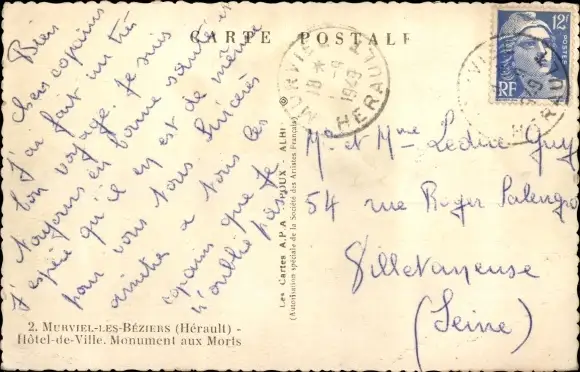 CARTE POSTALE
Bien
chers copains
J'ai fait un très
bon voyage. Je suis
toujours en bonne santé et
J'espère qu'il en est de même
pour vous tous sincères
amitiés a tous les
copains que je
n'oublie pas.
2. MURVIEL-LES-BÉZIERS (Hérault) -
Hôtel-de-Ville. Monument aux Morts
Les Cartes A.P.A. POUX - ALBI
(Autorisation spéciale de la Société des Artistes Français)
18 -9
1949
HERAULT
12F
POSTES
RF
Mr et Mme Leduc Guy
54 rue Roger Salengro
Villetaneuse
(Seine)